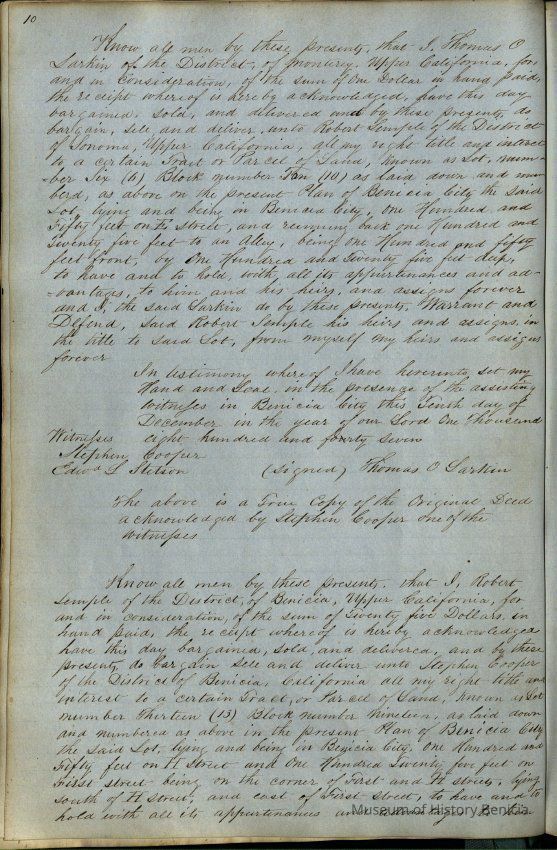 10
Know all men by these presents, that I, Thomas O
Larkin of the District, of Monterey, Upper California, for
and in Consideration, of the sum of One Dollar in hand paid,
the receipt whereof is hereby acknowledged, have this day
bargained, sold, and delivered and by these presents, do
bargain, sell, and deliver, unto Robert Semple of the District
of Sonoma, Upper California, all my right title and interest
to a certain Tract or Parcel of Land, known as Lot, num-
-ber Six (6) Block number Ten (10) as laid down and num
berd, as above on the present Plan of Benicia City the said
Lot, lying and being in Benicia City, One Hundred and
Fifty feet on H Street, and running back one Hundred and
Twenty five feet to an Alley, being One Hundred and fifty
feet front, by One Hundred and Twenty five feet deep,
to have and to hold, with all its appurtenances and ad-
-vantages, to him and his heirs, and assigns forever
and I, the said Larkin do by these presents, Warrant and
Defend, said Robert Semple his heirs and assigns, in
the title to said Lot, from myself my heirs and assigns
forever
In testimony whereof I have hereunto, set my
Hand and Seal, in the presence of the assisting
Witnesses in Benicia City this Tenth day of
December in the year of our Lord One Thousand
Witnesses eight hundred and forty seven
Stephen Cooper
Edwd L Stetson (Signed) Thomas O Larkin
The above is a True Copy of the Original Deed
acknowledged by Stephen Cooper one of the
Witnesses
Know all men by these presents, that I, Robert
Semple of the District, of Benicia, Upper California, for
and in consideration, of the sum of Twenty five Dollars, in
hand paid, the receipt whereof is hereby acknowledged
have this day bargained, sold, and delivered, and by these
presents, do bargain sell and deliver unto Stephen Cooper
of the District of Benicia, California all my right title and
interest to a certain Tract, or Parcel of Land, known as Lot
number Thirteen (13) Block number Nineteen, as laid down
and numbered as above in the present Plan of Benicia City
the said Lot, lying and being in Benicia City, One Hundred and
Fifty feet on H Street and One Hundred Twenty five feet on
First street being on the corner of First and H streets, lying
south of H street, and east of First street, to have and to
hold with all its appurtenances and
Museum of History Benicia